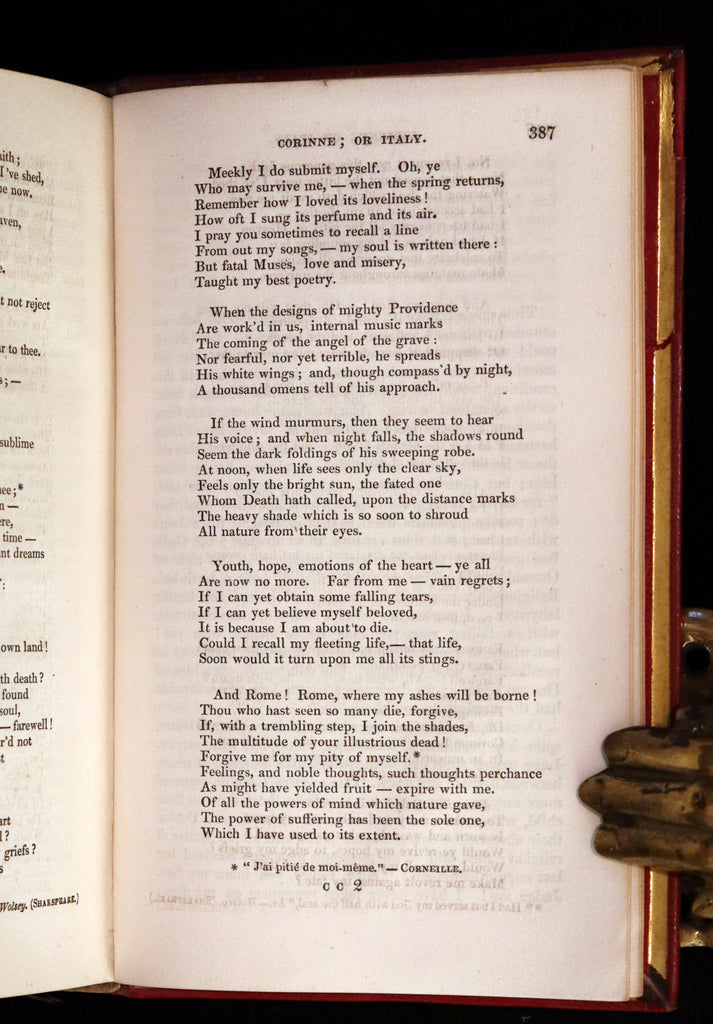 ith;
I've shed,
e now.
aven,
e.
t not reject
r to thee.
s; —
sublime
ee;*
n —
ere,
time —
nt dreams
own land!
th death?
found
soul,
— farewell!
r'd not
t
art
l?
griefs?
s
Wolsey. (SHAKSPEARE.)
CORINNE; OR ITALY. 387
Meekly I do submit myself. Oh, ye
Who may survive me, — when the spring returns,
Remember how I loved its loveliness!
How oft I sung its perfume and its air.
I pray you sometimes to recall a line
From out my songs, — my soul is written there:
But fatal Muses, love and misery,
Taught my best poetry.
When the designs of mighty Providence
Are work'd in us, internal music marks
The coming of the angel of the grave:
Nor fearful, nor yet terrible, he spreads
His white wings; and, though compass'd by night,
A thousand omens tell of his approach.
If the wind murmurs, then they seem to hear
His voice; and when night falls, the shadows round
Seem the dark foldings of his sweeping robe.
At noon, when life sees only the clear sky,
Feels only the bright sun, the fated one
Whom Death hath called, upon the distance marks
The heavy shade which is so soon to shroud
All nature from their eyes.
Youth, hope, emotions of the heart — ye all
Are now no more. Far from me — vain regrets;
If I can yet obtain some falling tears,
If I can yet believe myself beloved,
It is because I am about to die.
Could I recall my fleeting life, — that life,
Soon would it turn upon me all its stings.
And Rome! Rome, where my ashes will be borne!
Thou who hast seen so many die, forgive,
If, with a trembling step, I join the shades,
The multitude of your illustrious dead!
Forgive me for my pity of myself.*
Feelings, and noble thoughts, such thoughts perchance
As might have yielded fruit — expire with me.
Of all the powers of mind which nature gave,
The power of suffering has been the sole one,
Which I have used to its extent.
* "J'ai pitié de moi-même." — CORNEILLE.
C C 2